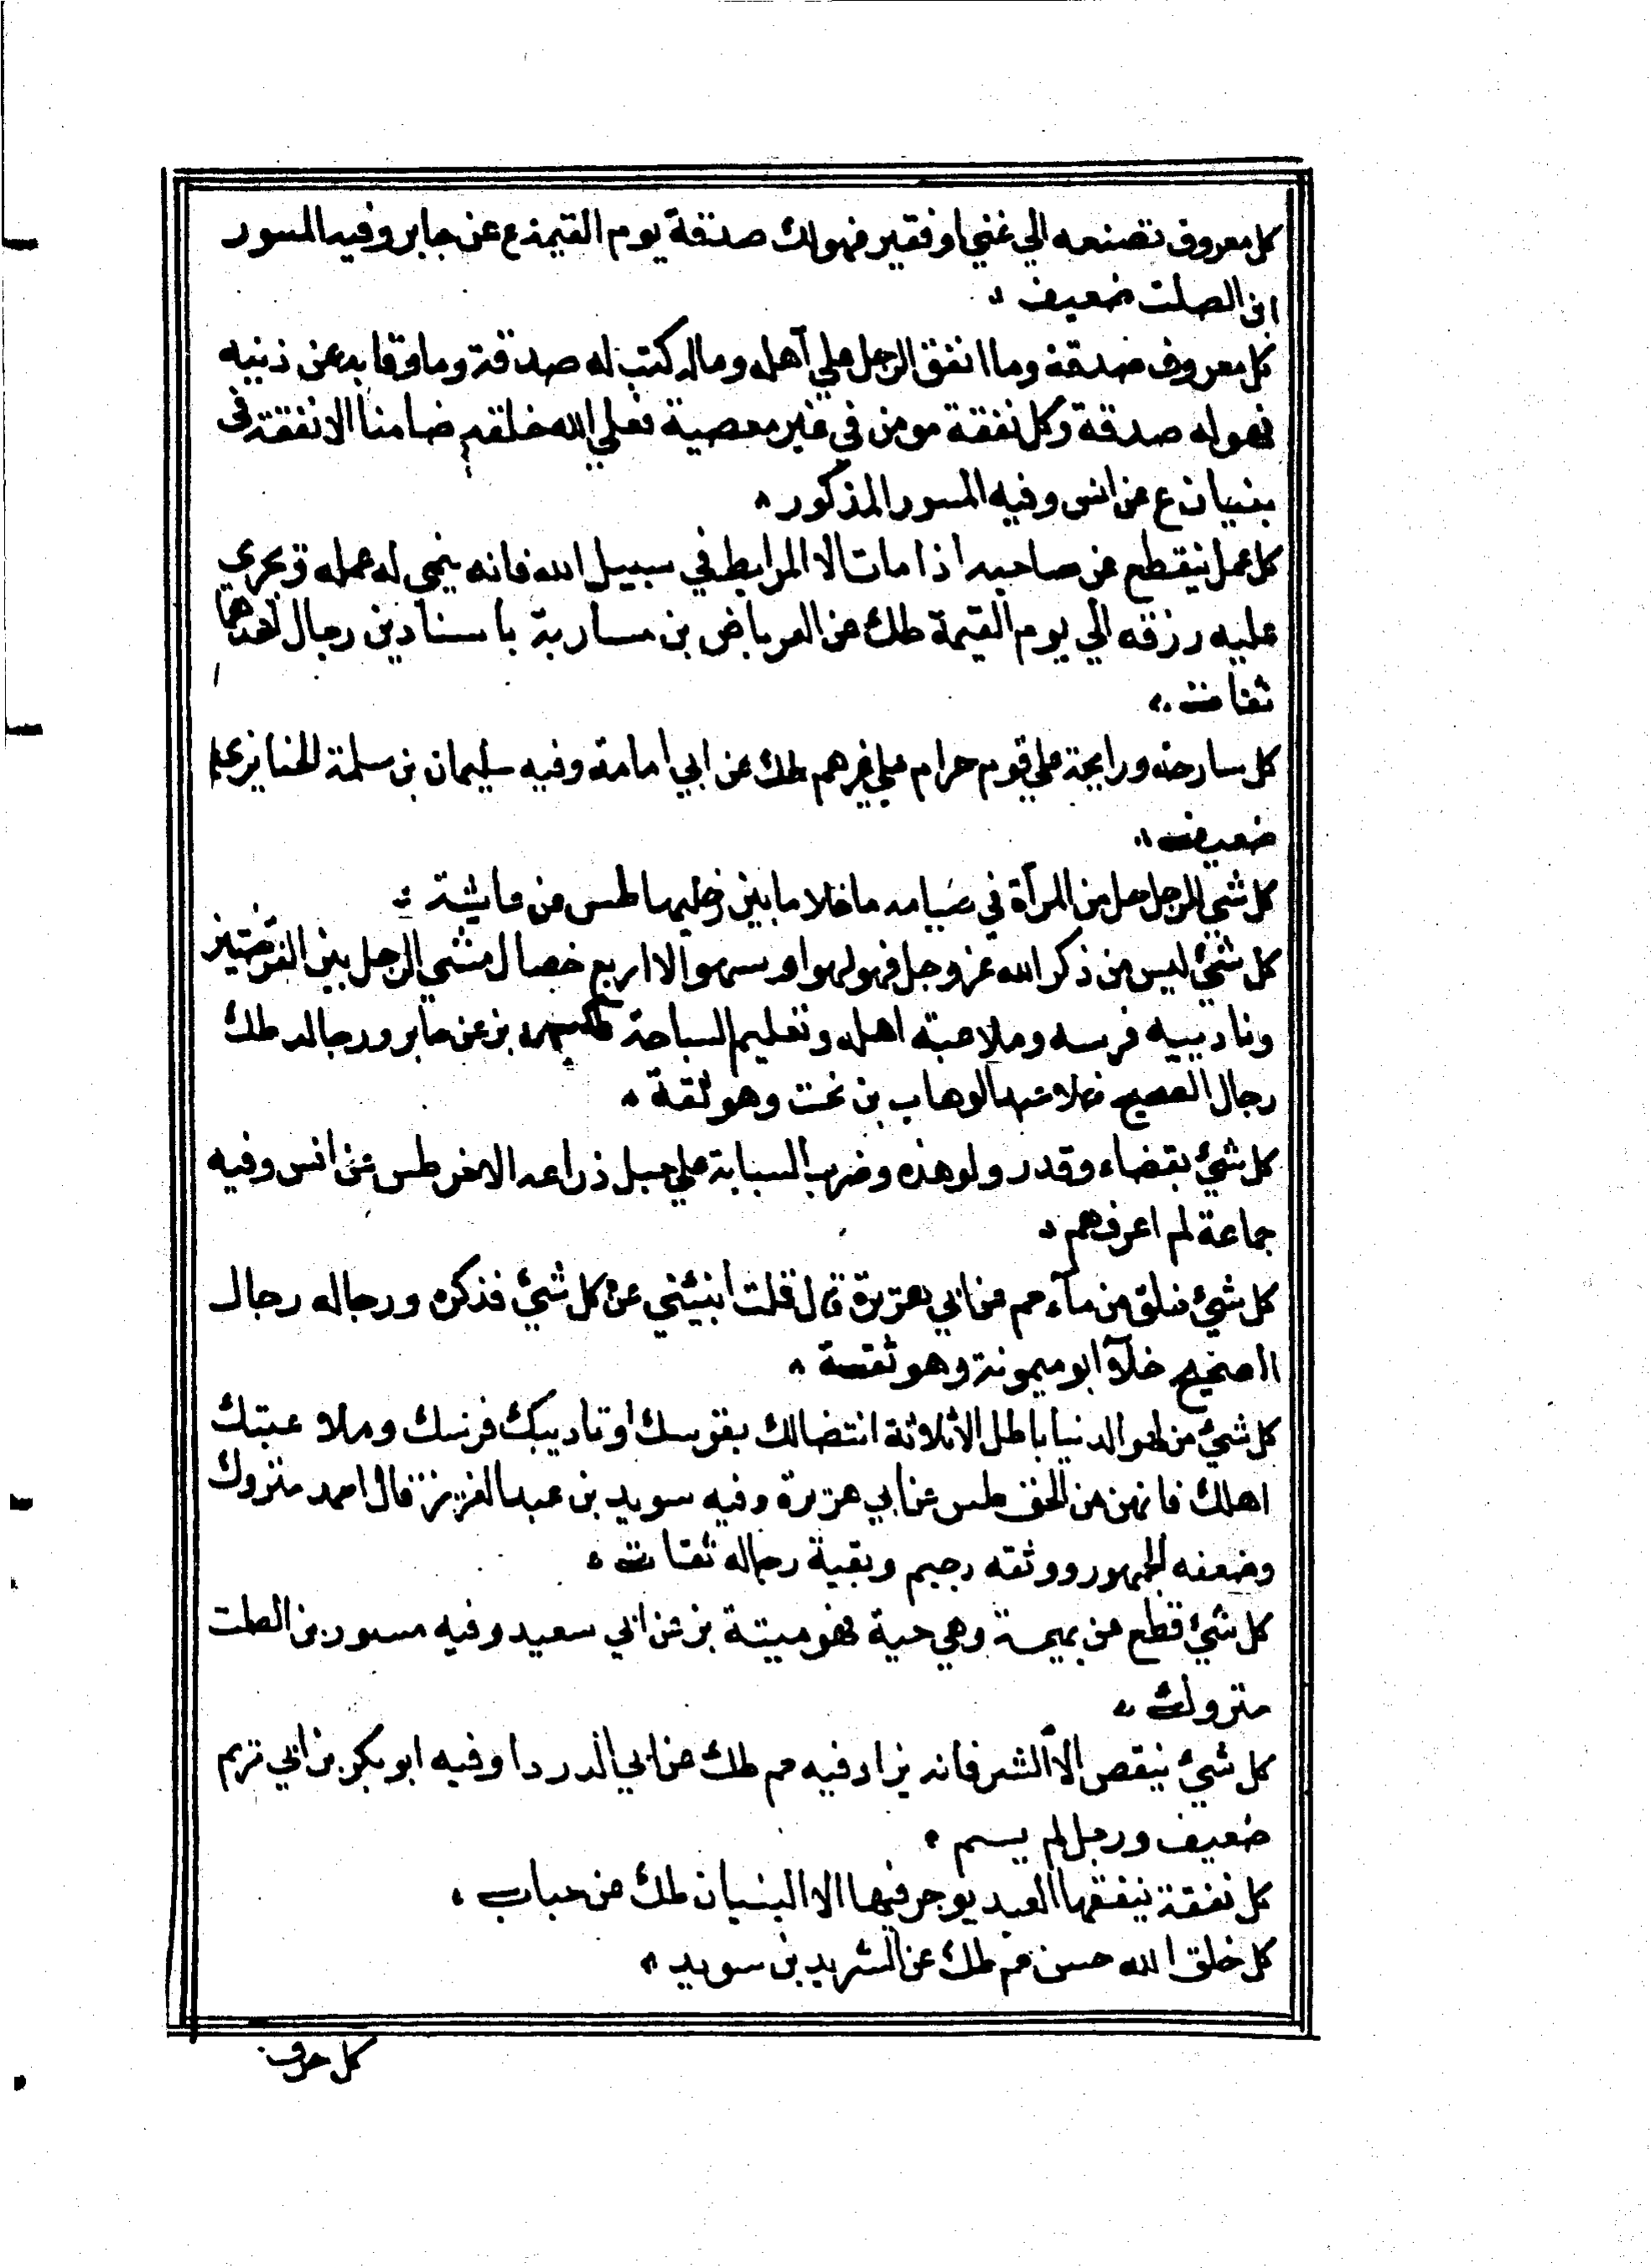 كل معروف تصنعه الي غني او فقير فهو لك صدقة يوم القيمة ع عن جابر وفيه المسور
ابن الصلت ضعيف
كل معروف صدقة وما انفق الرجل علي آهله وماله كتب له صدقة وما وقا به عن ذنبه
فهو له صدقة وكل نفقة مومن في غير معصية فعلي الله خلقه ضامنا الا نفقة في
بنيان ع عن انس وفيه المسور المذكور
كل عمل ينقطع عن صاحبه اذا مات الا المرابط في سبيل الله فانه ينمي له عمله ويجري
عليه رزقه الي يوم القيمة طك عن العرباض بن سارية باسنادين رجال احدهما
ثقات
كل سارحة ورايحة علي قوم حرام علي غيرهم طك عن ابي امامة وفيه سليمان بن سلمة الخبايري
ضعيف
كل شي للرجل حل من المرآة في صيامه ما خلا ما بين رجليها طس عن عايشة
كل شيء ليس من ذكر الله عز وجل فهو لهو او سهو الا اربع خصال مشي الرجل بين الغرضين
وتاديبه فرسه وملاعبته اهله وتعليم السباحة بز عن جابر ورجال طك
رجال الصحيح خلا عبد الوهاب بن بخت وهو ثقة
كل شيء بقضاء وقدر ولو هذه وضرب السبابة علي حبل ذراعه الاخر طس عن انس وفيه
جماعة لم اعرفهم
كل شيء خلق من مآء حم عن ابي هريرة قال قلت انبئني عن كل شيء فذكره ورجاله رجال
الصحيح خلآ ابو ميمونة وهو ثقة
كل شيء من لهو الدنيا باطل الا ثلاثة انتضالك بقوسك او تاديبك فرسك وملاعبتك
اهلك فانهن من الحق طس عن ابي هريرة وفيه سويد بن عبد العزيز قال احمد متروك
وضعفه الجمهور ووثقه دحيم وبقية رجاله ثقات
كل شيء قطع من بهيمة وهي حية فهو ميتة بز عن ابي سعيد وفيه مسور بن الصلت
متروك
كل شيء ينقص الا الشر فانه يزاد فيه حم طك عن ابي الدردا وفيه ابو بكر بن ابي مريم
ضعيف ورجل لم يسم
كل نفقة ينفقها العبد يوجر فيها الا البنيان طك عن خباب
كل خلق الله حسن حم طك عن الشريد بن سويد
كل حرف